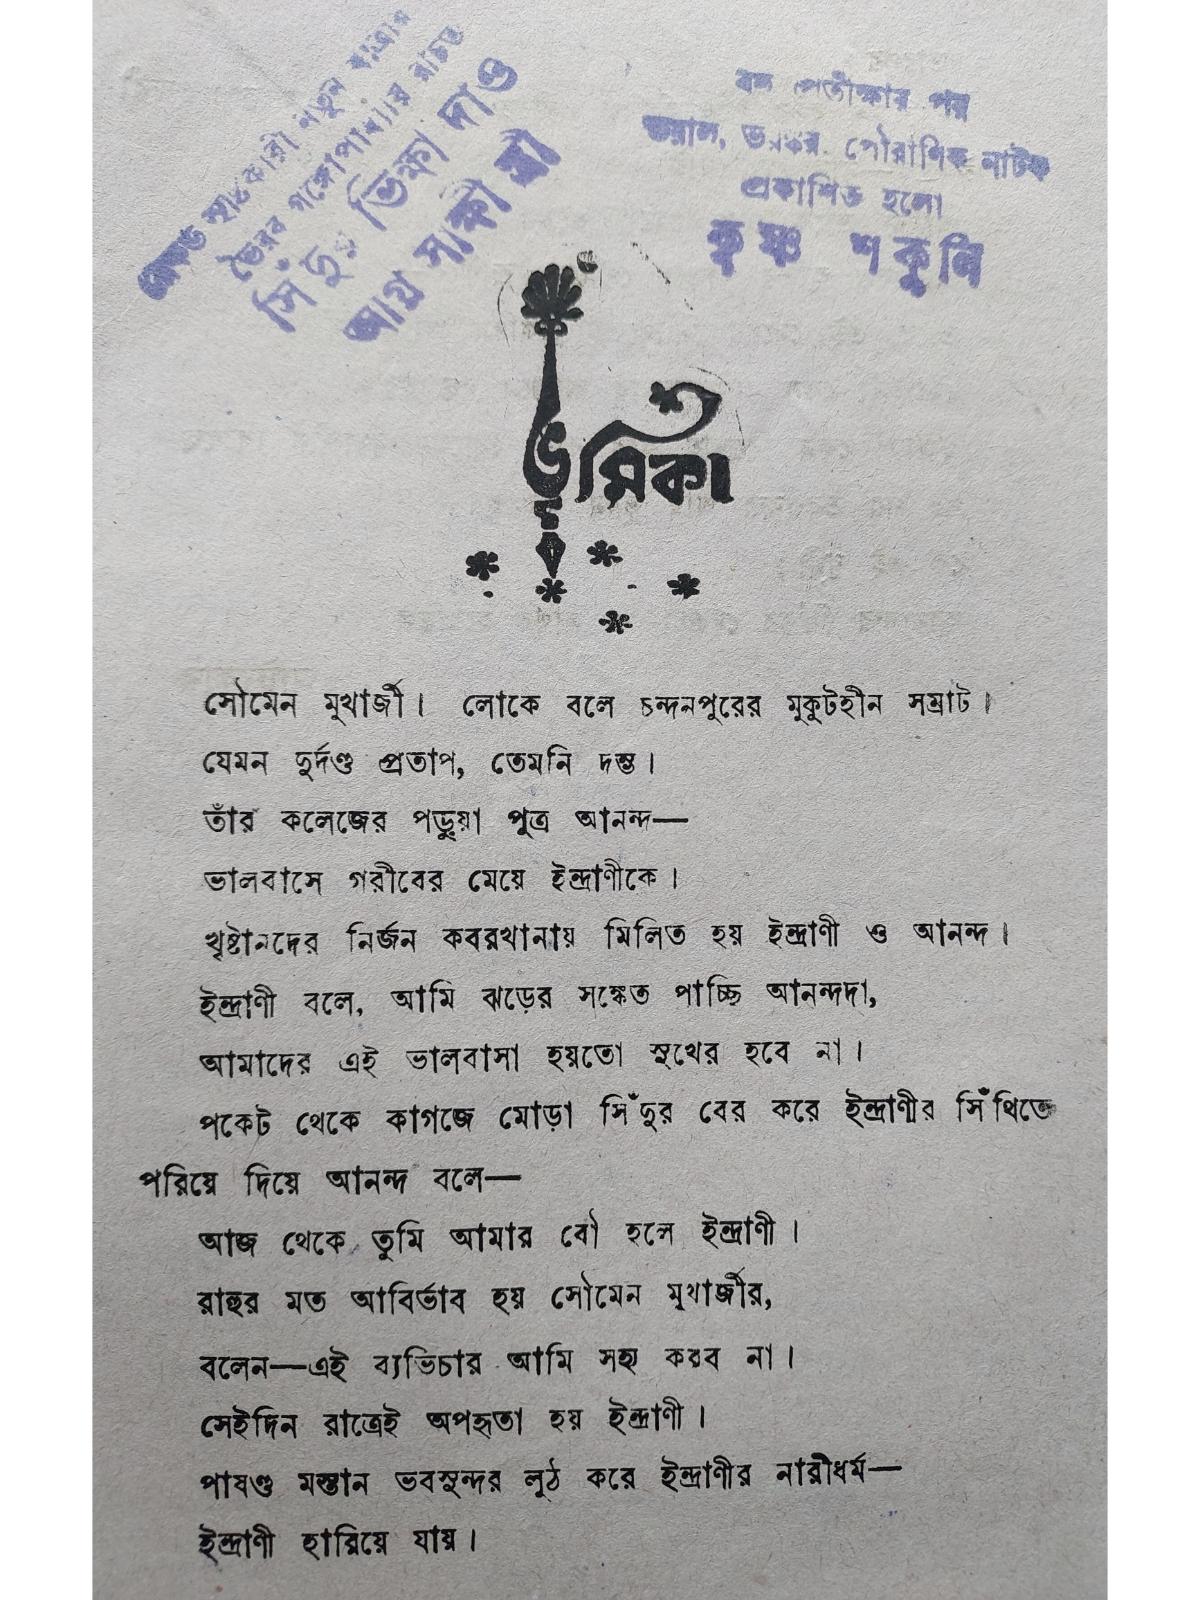 নতুন যাত্রার
ভৈরব গঙ্গোপাধ্যায় রচিত
সিঁদুর ভিক্ষা দাও
সাক্ষী স্ত্রী
পর
ভয়াল, ভয়ঙ্কর পৌরাণিক নাটক
প্রকাশিত হলো
কৃষ্ণ শকুনি
ভূমিকা
সৌমেন মুখার্জী। লোকে বলে চন্দনপুরের মুকুটহীন সম্রাট।
যেমন দুর্দণ্ড প্রতাপ, তেমনি দম্ভ।
তাঁর কলেজের পড়ুয়া পুত্র আনন্দ—
ভালবাসে গরীবের মেয়ে ইন্দ্রাণীকে।
খৃষ্টানদের নির্জন কবরখানায় মিলিত হয় ইন্দ্রাণী ও আনন্দ।
ইন্দ্রাণী বলে, আমি ঝড়ের সঙ্কেত পাচ্ছি আনন্দদা,
আমাদের এই ভালবাসা হয়তো সুখের হবে না।
পকেট থেকে কাগজে মোড়া সিঁদুর বের করে ইন্দ্রাণীর সিঁথিতে
পরিয়ে দিয়ে আনন্দ বলে—
আজ থেকে তুমি আমার বৌ হলে ইন্দ্রাণী।
রাহুর মত আবির্ভাব হয় সৌমেন মুখার্জীর,
বলেন—এই ব্যভিচার আমি সহ্য করব না।
সেইদিন রাত্রেই অপহৃতা হয় ইন্দ্রাণী।
পাষণ্ড মস্তান ভবসুন্দর লুঠ করে ইন্দ্রাণীর নারীধর্ম—
ইন্দ্রাণী হারিয়ে যায়।